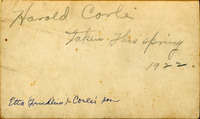 Harold Corli
Taken this spring
1922.
Etta & Corli's son